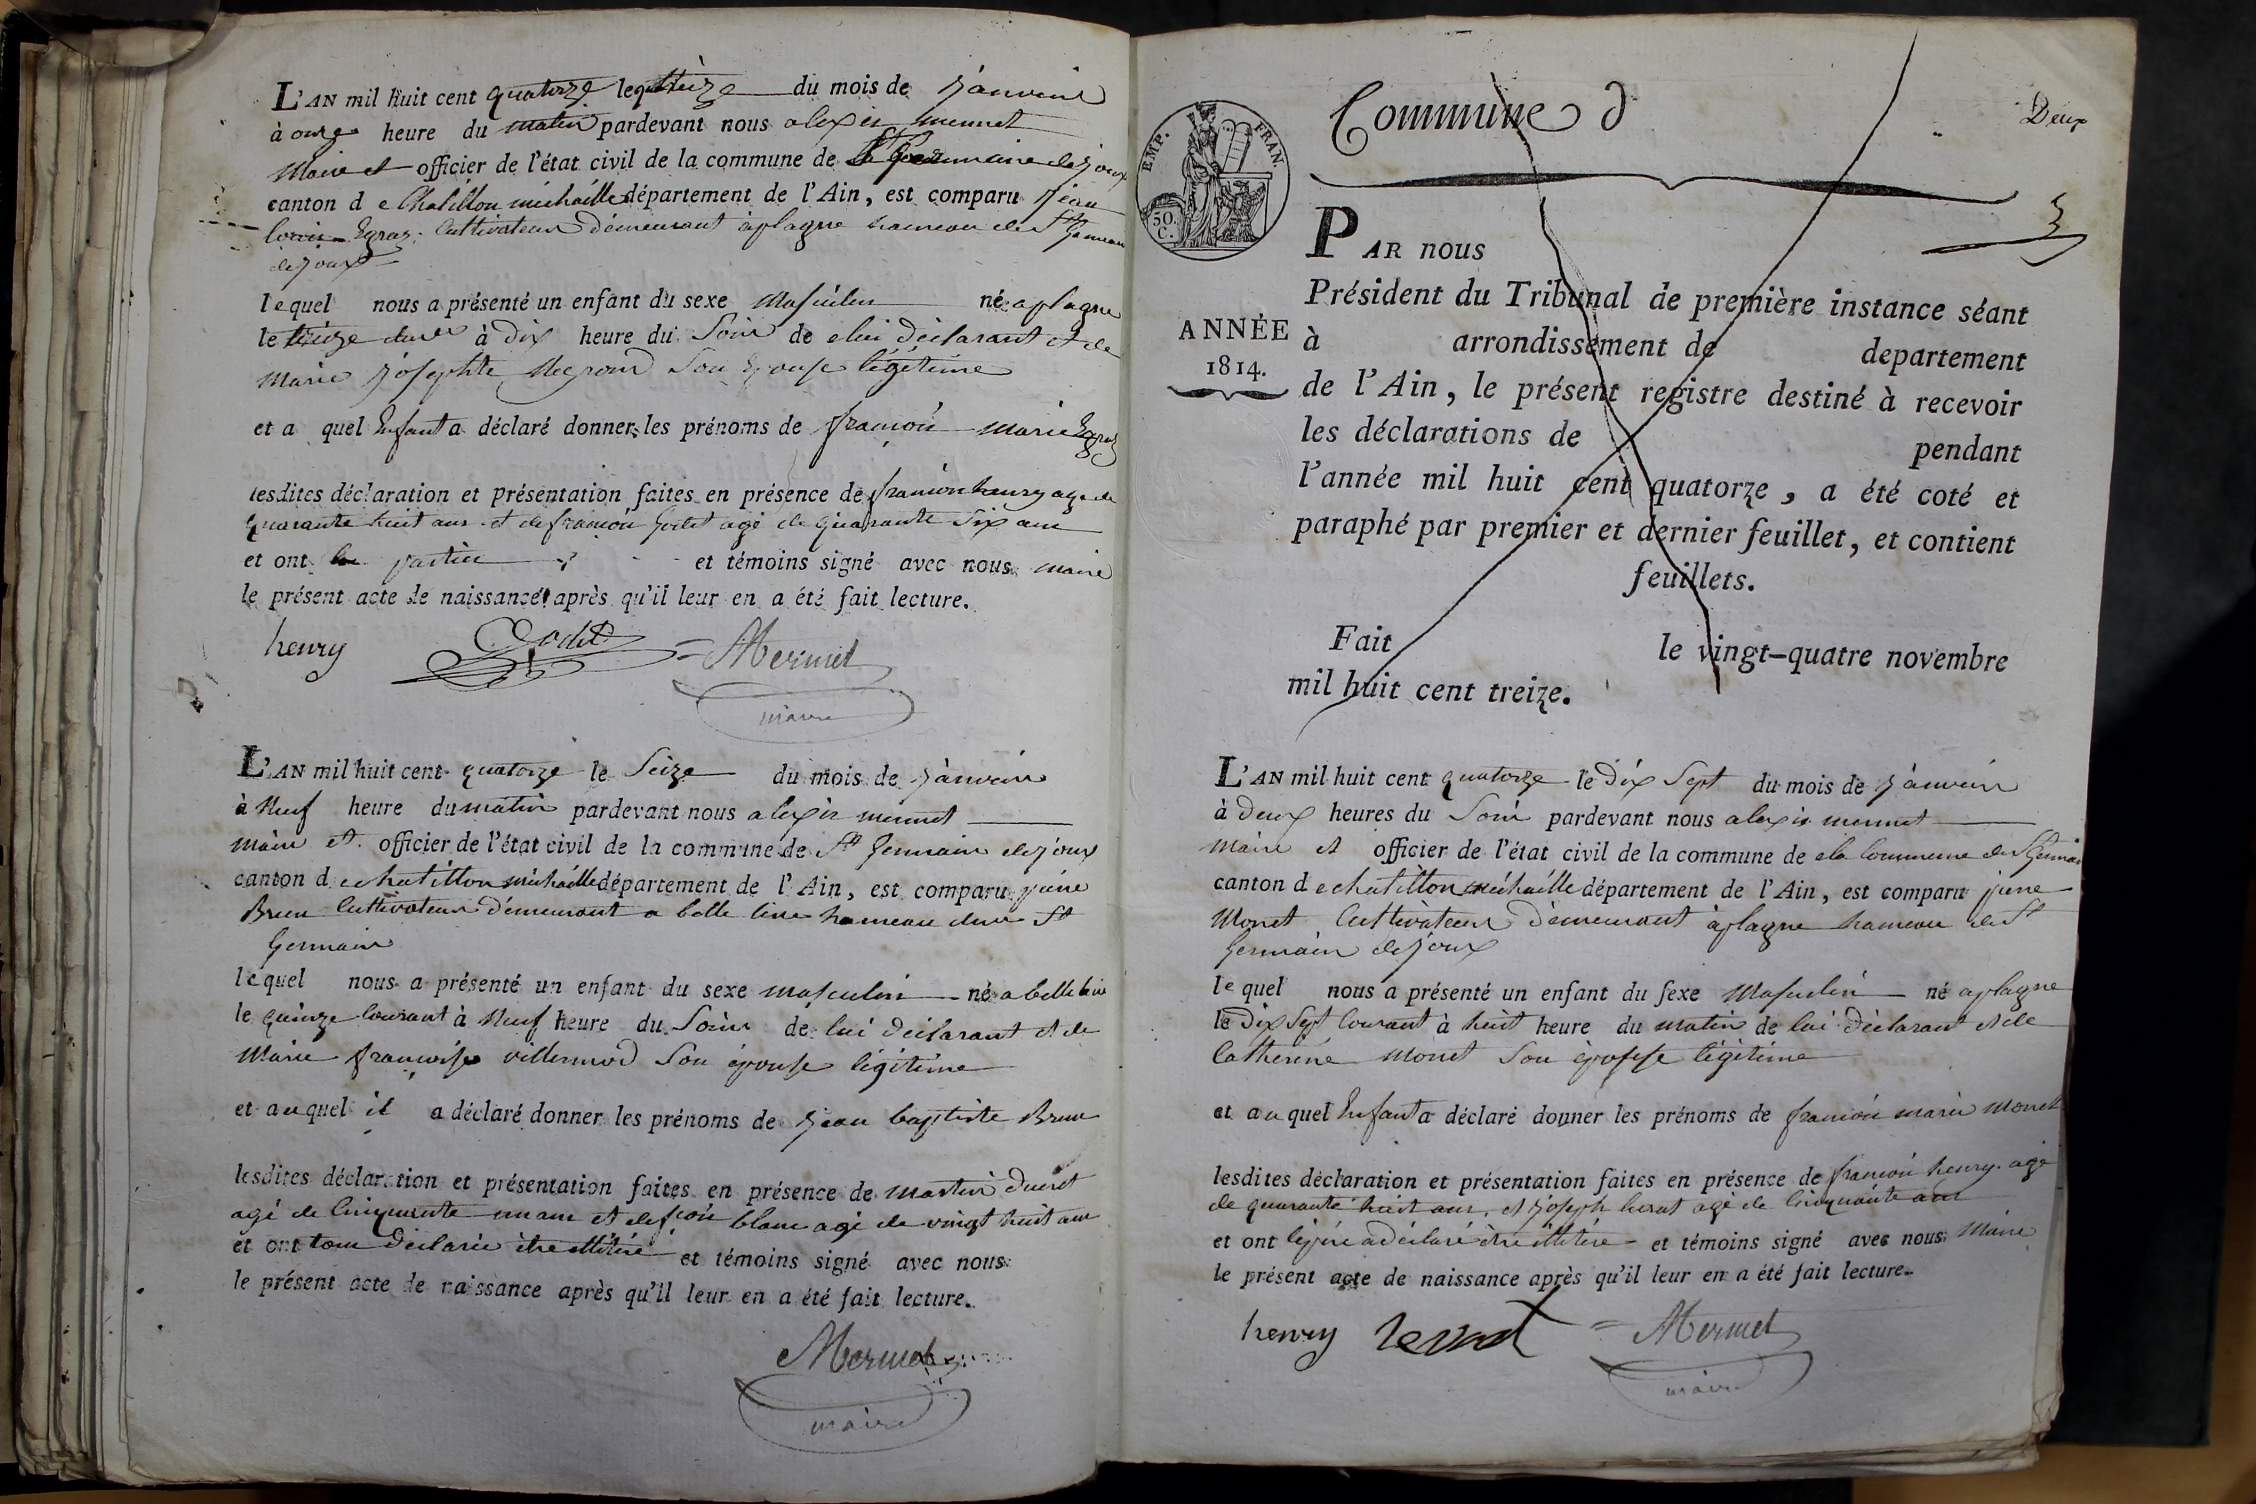 L'AN mil huit cent quatorze le treize du mois de janvier
à onze heure du matin pardevant nous alexis mermet
Maire et officier de l'état civil de la commune de St Germain de joux
canton de Chatillon michaille département de l'Ain, est comparu jean
louis Egraz cultivateur demeurant a plagne hameau de St Germain
de joux
lequel nous a présenté un enfant du sexe masculin né a plagne
le treize à dix heure du Soir de lui déclarant et de
Marie josephte Son Epouse légétime
et a quel Enfant a déclaré donner les prénoms de françois marie Egraz
lesdites déclaration et présentation faites en présence de françois henry age de
quarante huit ans et de françois Godet agé de quarante Six ans
et ont partie et témoins signé avec nous maire
le présent acte de naissance après qu'il leur en a été fait lecture.
henry Godet Mermet
maire
L'AN mil huit cent quatorze le Seize du mois de janvier
à Neuf heure du matin pardevant nous alexis mermet
maire et officier de l'état civil de la commune de St Germain de joux
canton de chatillon michaille département de l'Ain, est comparu
Brun Cultivateur demeurant a belle live hameau de St
Germain
lequel nous a présenté un enfant du sexe masculin né a belle live
le quinze Courant à Neuf heure du Soir de lui déclarant et de
Marie françoise villermod Son épouse légitime
et auquel il a déclaré donner les prénoms de jean baptiste Brun
lesdites déclaration et présentation faites en présence de martin ducret
agé de Cinquante un ans et de fçois blanc agé de vingt huit ans
et ont tous déclaré être illitéré et témoins signé avec nous
le présent acte de naissance après qu'il leur en a été fait lecture.
Mermet
maire
Commune d
Deux
EMP. FRAN.
50. C.
PAR nous
Président du Tribunal de première instance séant
ANNÉE
1814.
à arrondissement de departement
de l'Ain, le présent registre destiné à recevoir
les déclarations de pendant
l'année mil huit cent quatorze, a été coté et
paraphé par premier et dernier feuillet, et contient
feuillets.
Fait le vingt-quatre novembre
mil huit cent treize.
L'AN mil huit cent quatorze le Dix Sept du mois de janvier
à deux heures du Soir pardevant nous alexis mermet
Maire et officier de l'état civil de la commune de la Commune de St Germain
canton de chatillon michaille département de l'Ain, est comparu
Monet Cultivateur demeurant à plagne hameau de St
Germain de joux
lequel nous a présenté un enfant du sexe Masculin né a plagne
le Dix Sept Courant à huit heure du matin de lui déclarant et de
Catherine Monet Son épouse légétime
et au quel Enfant a déclaré donner les prénoms de françois marie Monet
lesdites déclaration et présentation faites en présence de françois henry agé
de quarante huit ans, et joseph agé de Cinquante ans
et ont le père a déclaré être illitéré et témoins signé avec nous Maire
le présent acte de naissance après qu'il leur en a été fait lecture.
henry Mermet
maire